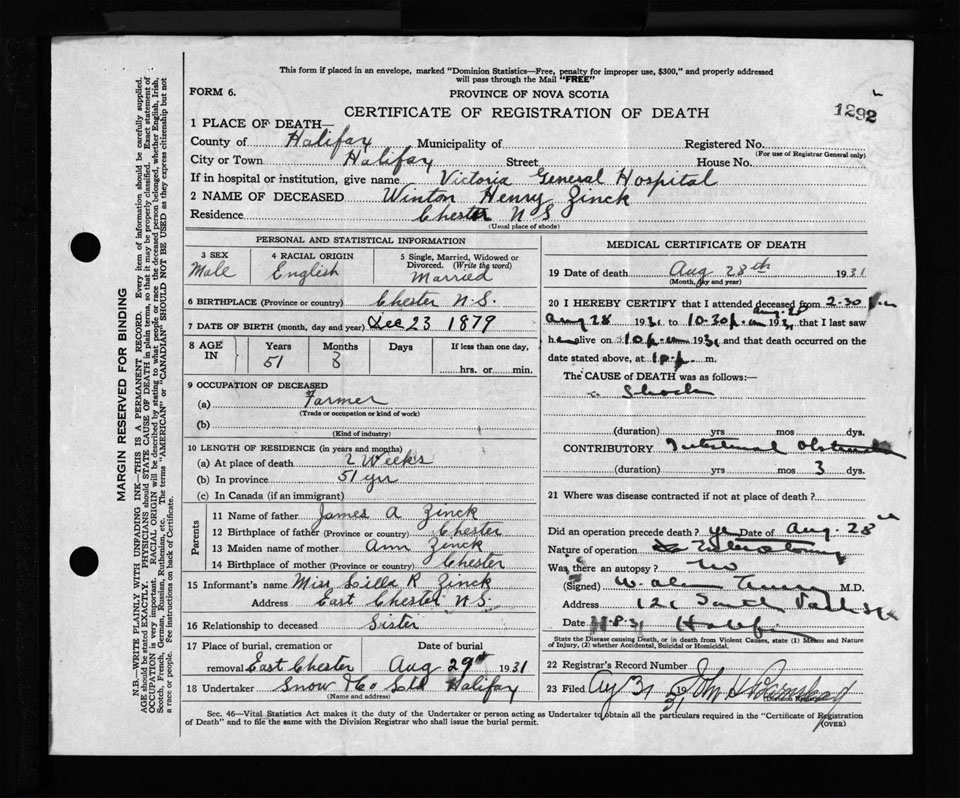 This form if placed in an envelope, marked "Dominion Statistics—Free, penalty for improper use, $300," and properly addressed
will pass through the Mail "FREE"
FORM 6.
PROVINCE OF NOVA SCOTIA
CERTIFICATE OF REGISTRATION OF DEATH
1292
1 PLACE OF DEATH—
County of Halifax Municipality of Registered No.
(For use of Registrar General only)
City or Town Halifax Street House No.
If in hospital or institution, give name Victoria General Hospital
2 NAME OF DECEASED Winton Henry Zinck
Residence Chester N S
(Usual place of abode)
PERSONAL AND STATISTICAL INFORMATION
3 SEX 4 RACIAL ORIGIN 5 Single, Married, Widowed or Divorced. (Write the word)
Male English Married
6 BIRTHPLACE (Province or country) Chester N.S.
7 DATE OF BIRTH (month, day and year) Dec 23 1879
8 AGE IN Years Months Days If less than one day,
51 8 hrs. or min.
9 OCCUPATION OF DECEASED
(a) Farmer
(Trade or occupation or kind of work)
(b)
(Kind of industry)
10 LENGTH OF RESIDENCE (in years and months)
(a) At place of death 2 Weeks
(b) In province 51 yrs
(c) In Canada (if an immigrant)
Parents
11 Name of father James A Zinck
12 Birthplace of father (Province or country) Chester
13 Maiden name of mother Ann Zinck
14 Birthplace of mother (Province or country) Chester
15 Informant's name Miss Lilla R Zinck
Address East Chester N S.
16 Relationship to deceased Sister
17 Place of burial, cremation or
removal East Chester Aug 29th 1931
18 Undertaker Snow & Co Ltd Halifax
(Name and address)
MEDICAL CERTIFICATE OF DEATH
19 Date of death Aug 28th 1931
(Month, day and year)
20 I HEREBY CERTIFY that I attended deceased from 2-30 pm
Aug 28 1931 to 10-30 p.m Aug 28 1931 that I last saw
h alive on 10 p.m 1931 and that death occurred on the
date stated above, at 10 p. m.
The CAUSE of DEATH was as follows:—
Shock
(duration) yrs mos dys.
CONTRIBUTORY Intestinal Obstruction
(duration) yrs mos 3 dys.
21 Where was disease contracted if not at place of death?
Did an operation precede death? yes Date of Aug. 28th
Nature of operation
Was there an autopsy? No
(Signed) W. Alan M.D.
Address 121 South Park St
Date 8-31 Halifax
State the Disease causing Death, or in death from Violent Causes, state (1) Means and Nature
of Injury, (2) whether Accidental, Suicidal or Homicidal.
22 Registrar's Record Number
23 Filed Aug 31 1931 John H
(Division Registrar)
Sec. 46—Vital Statistics Act makes it the duty of the Undertaker or person acting as Undertaker to obtain all the particulars required in the "Certificate of Registration
of Death" and to file the same with the Division Registrar who shall issue the burial permit.
(OVER)
MARGIN RESERVED FOR BINDING
N.B.—WRITE PLAINLY WITH UNFADING INK—THIS IS A PERMANENT RECORD. Every item of information should be carefully supplied.
AGE should be stated EXACTLY. PHYSICIANS should STATE CAUSE OF DEATH in plain terms, so that it may be properly classified. Exact statement of
OCCUPATION is very important. RACIAL ORIGIN will be described by stating to what people or race the deceased person belonged, whether English, Irish,
Scotch, French, German, Russian, Ruthenian, etc. The terms "AMERICAN" or "CANADIAN" SHOULD NOT BE USED as they express citizenship but not
a race or people. See instructions on back of Certificate.